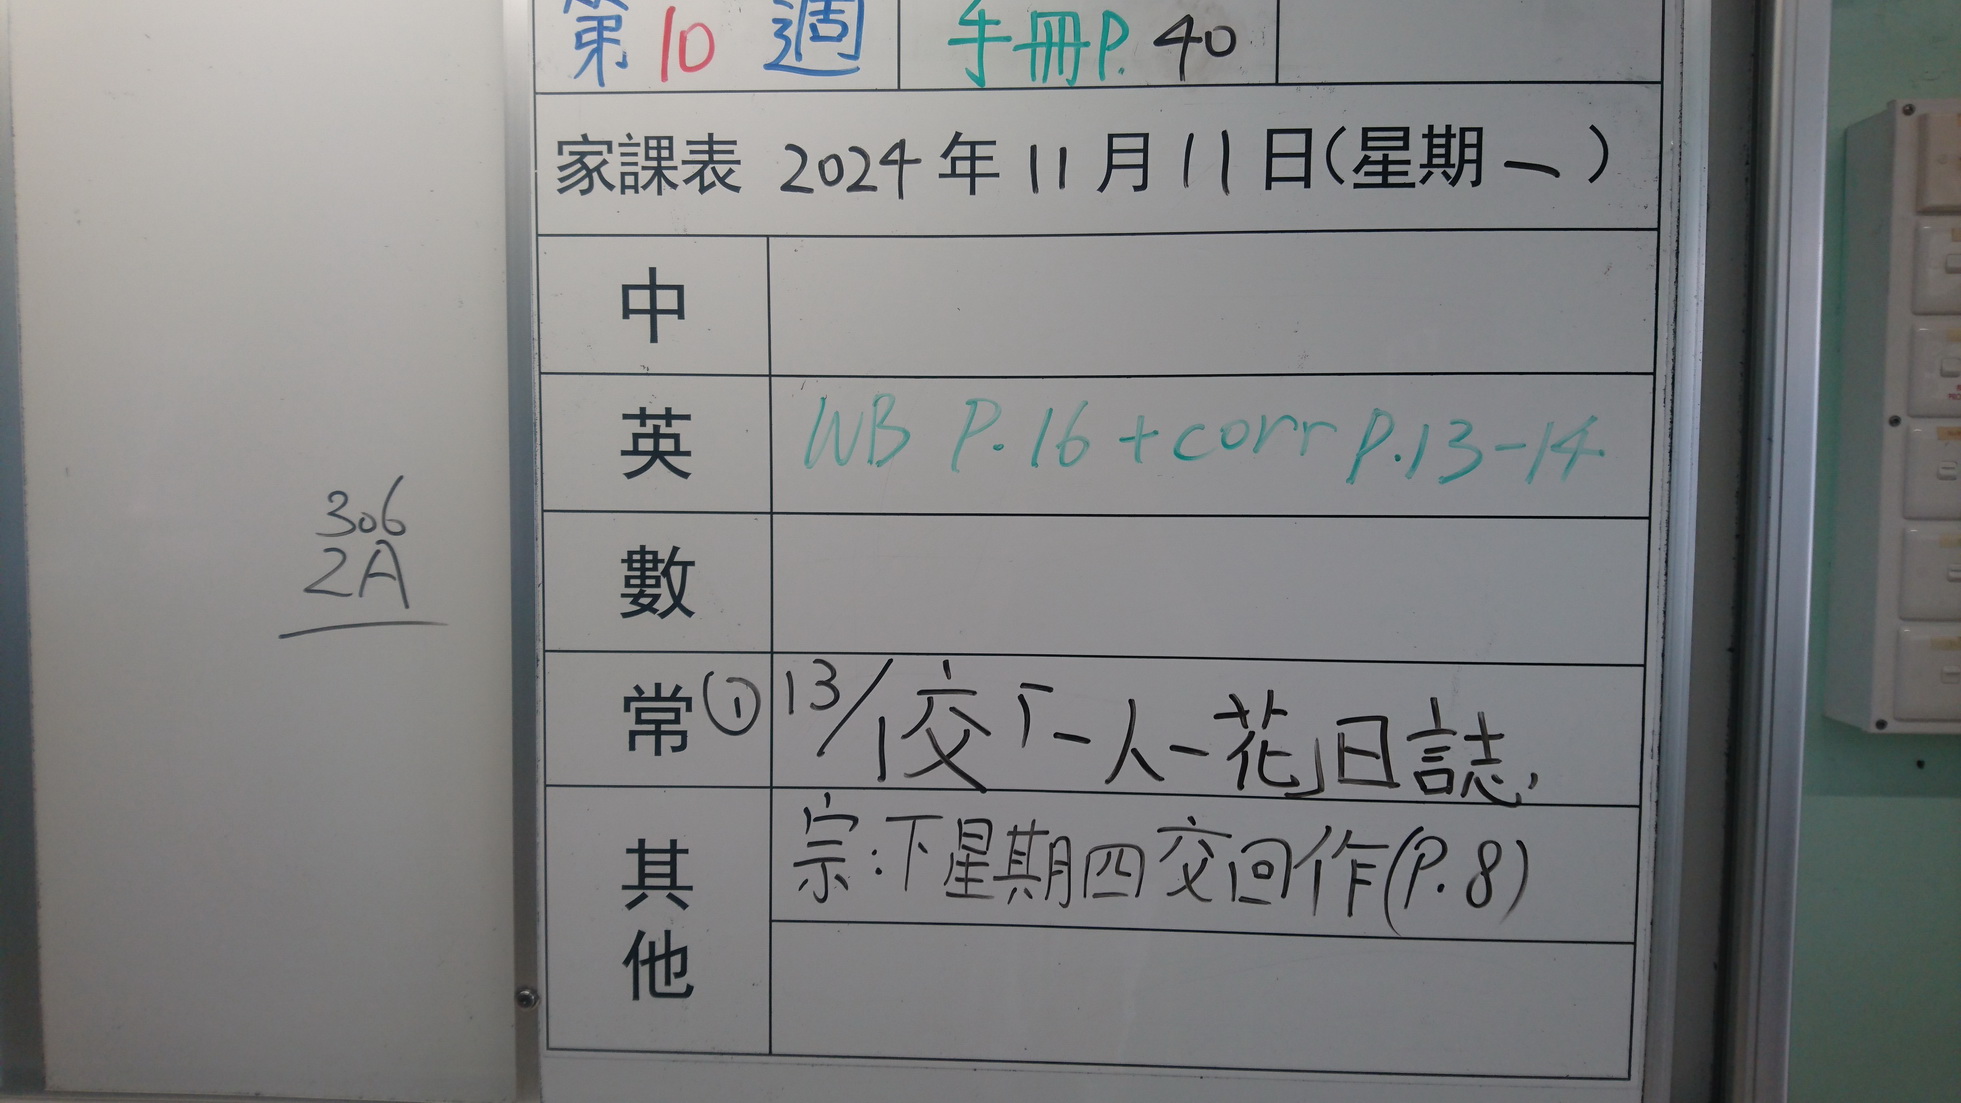 第10週 手冊P.40
家課表 2024年11月11日(星期一)
中
英 WB P.16 + corr P.13-14.
306
2A
數
常 ① 13/1交「一人一花」日誌,
其他
宗:下星期四交回作(P.8)